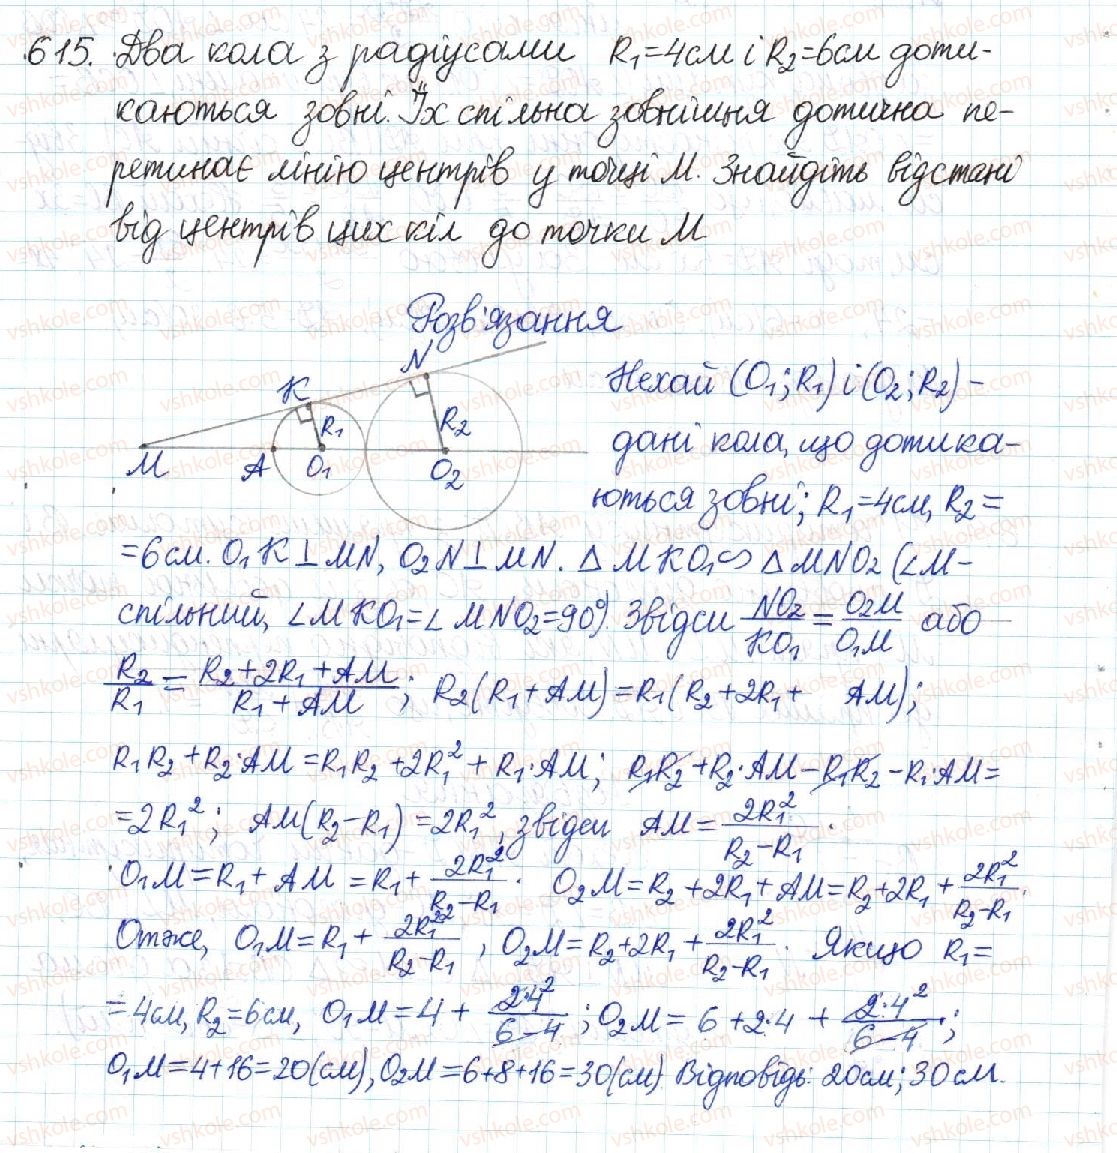 615. Два кола з радіусами R₁=4см і R₂=6см доти-
каються зовні. Їх спільна зовнішня дотична пе-
ретинає лінію центрів у точці М. Знайдіть відстані
від центрів цих кіл до точки М
Розв'язання
N
K
R₁
R₂
M
A
O₁
O₂
Нехай (O₁; R₁) і (O₂; R₂) -
дані кола, що дотика-
ються зовні; R₁=4см, R₂=
=6см. O₁K⊥MN, O₂N⊥MN. △MKO₁∽△MNO₂ (∠M-
спільний, ∠MKO₁=∠MNO₂=90°). Звідси NO₂/KO₁ = O₂M/O₁M або
R₂/R₁ = (R₂+2R₁+AM)/(R₁+AM); R₂(R₁+AM)=R₁(R₂+2R₁+ AM);
R₁R₂+R₂·AM=R₁R₂+2R₁²+R₁·AM; R₁R₂+R₂·AM-R₁R₂-R₁·AM=
=2R₁²; AM(R₂-R₁)=2R₁², звідси AM=2R₁²/(R₂-R₁).
O₁M=R₁+AM=R₁+2R₁²/(R₂-R₁). O₂M=R₂+2R₁+AM=R₂+2R₁+2R₁²/(R₂-R₁).
Отже, O₁M=R₁+2R₁²/(R₂-R₁), O₂M=R₂+2R₁+2R₁²/(R₂-R₁). Якщо R₁=
=4см, R₂=6см, O₁M=4+2·4²/(6-4); O₂M=6+2·4+2·4²/(6-4);
O₁M=4+16=20(см), O₂M=6+8+16=30(см) Відповідь: 20см; 30см.